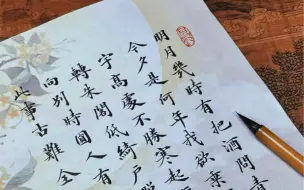 明月幾時有把酒問青
今夕是何年我欲乘
宇高處不勝寒起
轉朱閣低綺戶
向別時圓人有
此事古難全